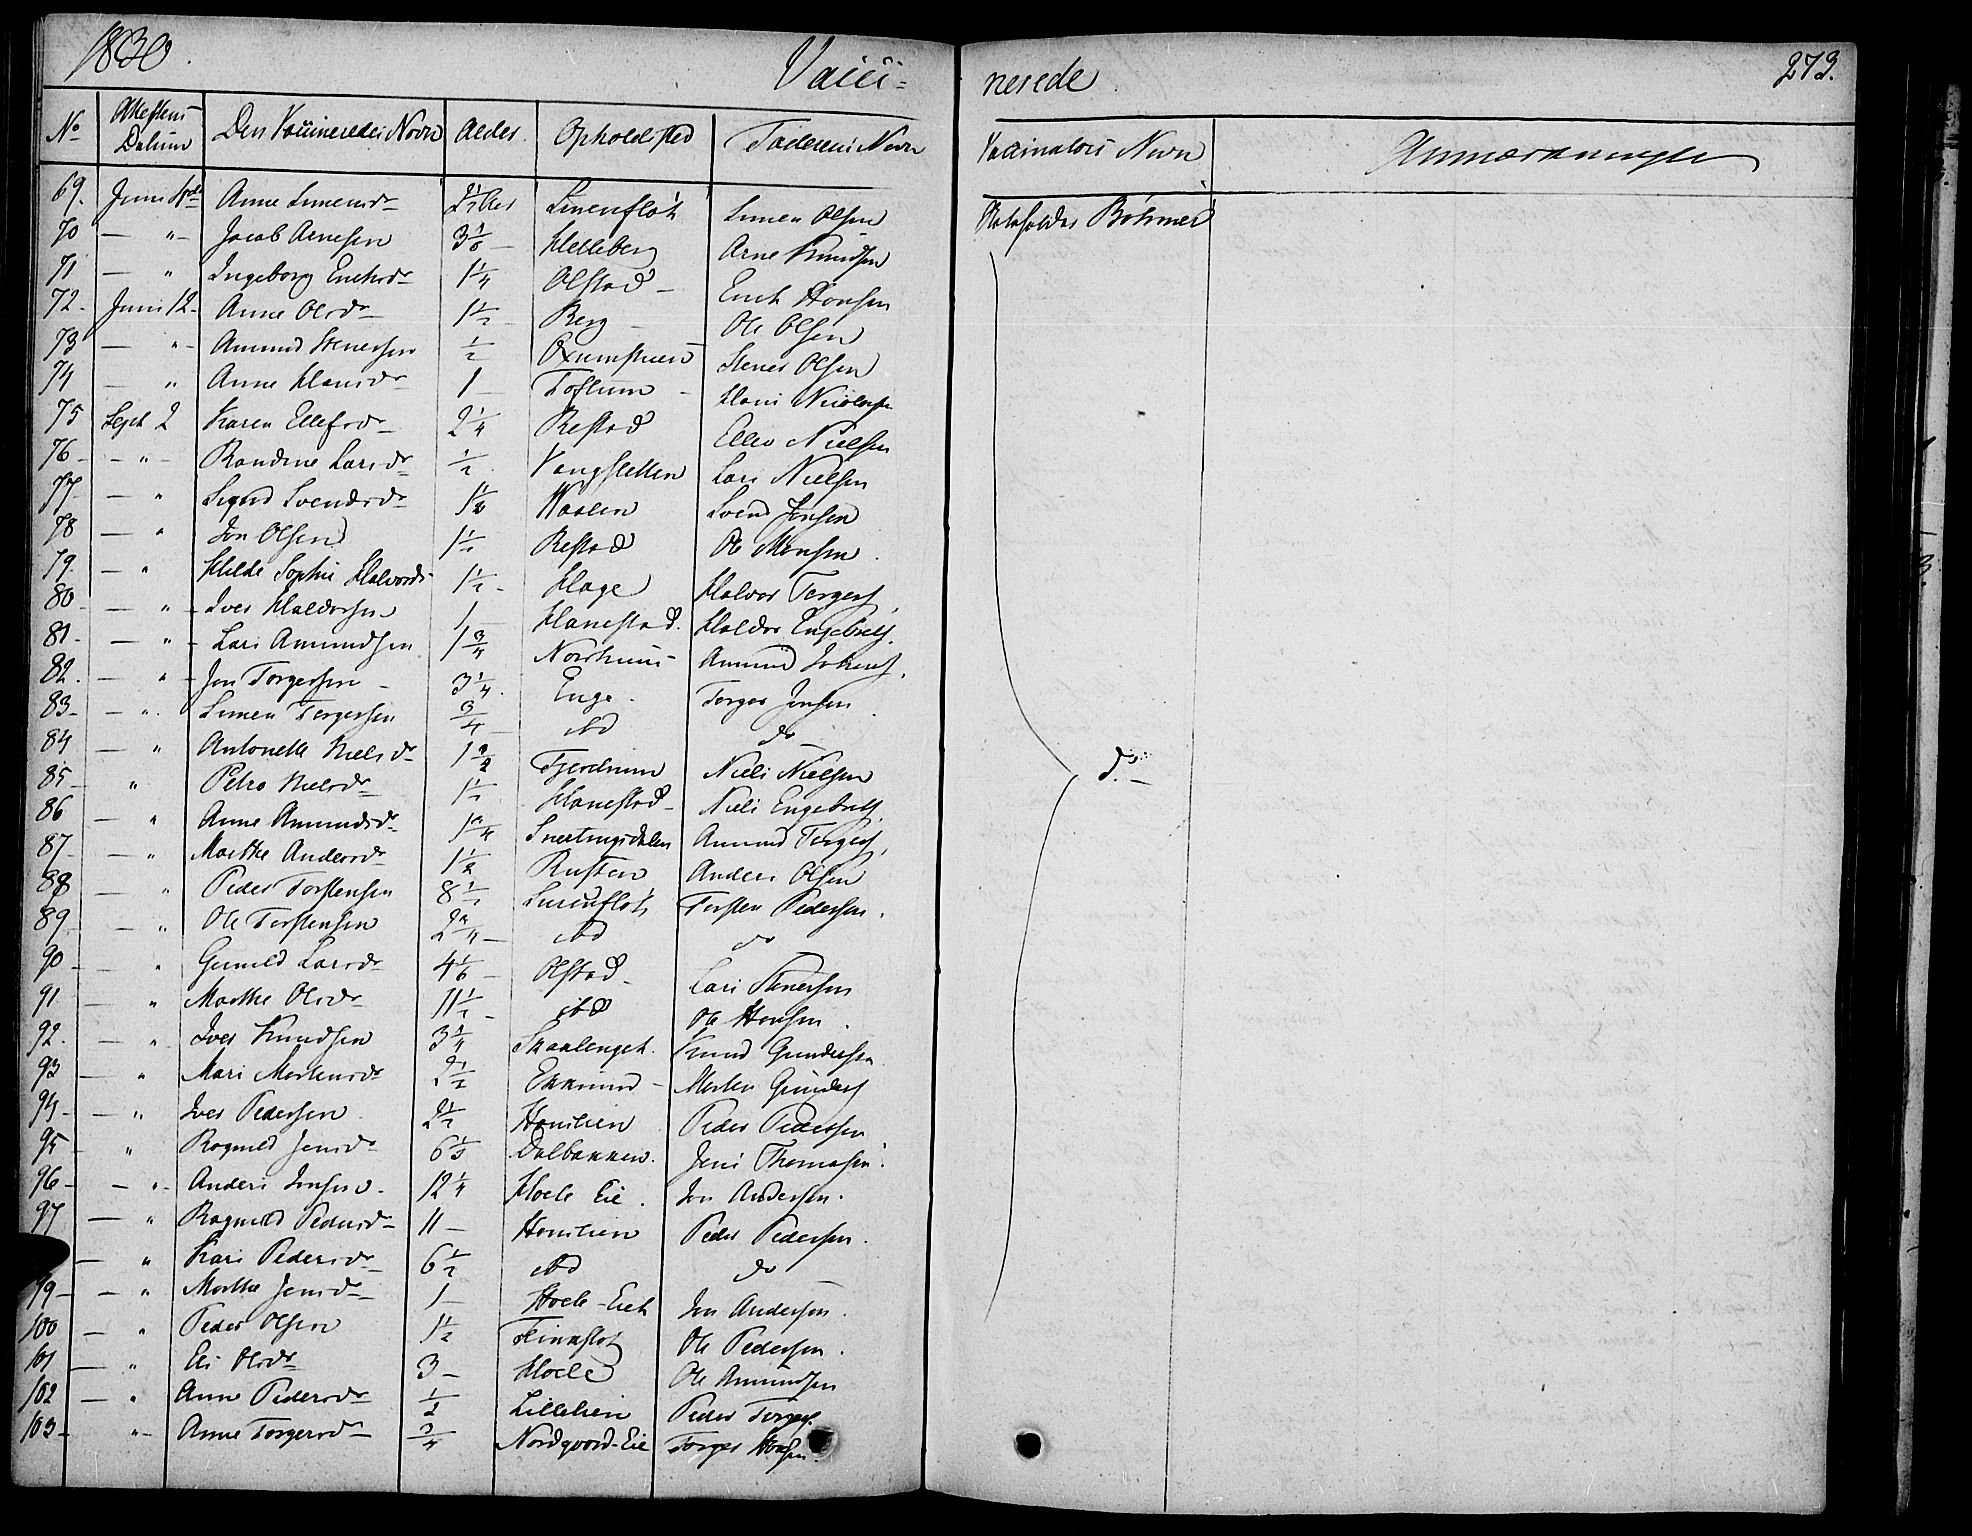 1830. Vacci= nerede. 273.
No Attestens Datum Den Vaccineredes Navn Alder. Opholdsted Faderens Navn Vaccinateurs Navn Anmærkninger
69. Juni Anne Simensdr 2½ Aar Simen Olsen Böhmer
70 — " — Jacob Arnesen Helleberg Arne Knudsen
71 — " Ingeborg Erichsdr 1¼ Olstad — Erich Hansen
72 — Juni 12 — Anne Olsdr 1½ — Berg — Ole Olsen
73 — " — Amund Stenersen ½ Stener Olsen
74 — " Anne Hansdr 1 — Toftum — Hans
75 Sept 2 Karen Ellefsdr 2¼ Restad Ellev Nielsen
76 — " — Randine Larsdr ½ Vangsletten Lars Nielsen
77 — " Sigrid Svendsdr 1½ Svend Jonsen
78 — " Jon Olsen 1½ Restad Ole Monsen
79 — " Hilde Sophie Halvords 1½ — Hage Halvor Torgers
80 — " — Iver Haldorsen 1 Hanestad. Haldor Engebrets.
81 — " — Lars Amundsen 1¾ Amund
82. — " — Jon Torgersen — 3¼. Enge. Torger Jonsen
83 — " Simen Torgersen ¾ ibd do
84 — " Antonette Nielsdr Fjerdrum Niels Nielsen
85 — " Petro Nielsdr 1½ Hanestad — Niels Engebrets.
86 — " Anne Amundsdr Snertingsdalen Amund Torgers.
87 — " Marthe Andersdr 1½ Rusten Anders Olsen
88 — " Peder Torstensen 8½ Torsten Pedersen.
89 — " Ole Torstensen ibd do
90 — " Gunild Larsdr 4⅙ — Olstad — Lars Stenersen
91 — " Marthe Olsdr 11½ — ibd Ole Hansen.
92. — " Iver Knudsen 3¼ Knud Gundersen
93 — " Mari Mortensdr 2½ Morten Gunders
94 — " Iver Pedersen 2½ Honilien Peder Pedersen
95 — " Ragnild Jensdr 6⅓ Dalbakken. Jens Thomasen.
96 — " — Anders Jonsen. 12¼ Hoele Eie. Jon Andersen.
97 — " Ragnild Pedersdr 11 — Honilien Peder Pedersen.
— " Kari Pedersdr 6½ ibd do
99 — " Marthe Jensdr 1 — Hoele-Eiet Jon Andersen.
100 — " Peder Olsen 1½ Ole Pedersen.
101 — " Eli Olsdr 3 — Hoele Ole Amundsen
102 — " Anne Pedersdr ½ Lillelien Peder Torgers.
103 — " — Anne Torgersdr ¾ Nordgaard-Eie Torger Hansen.
do —